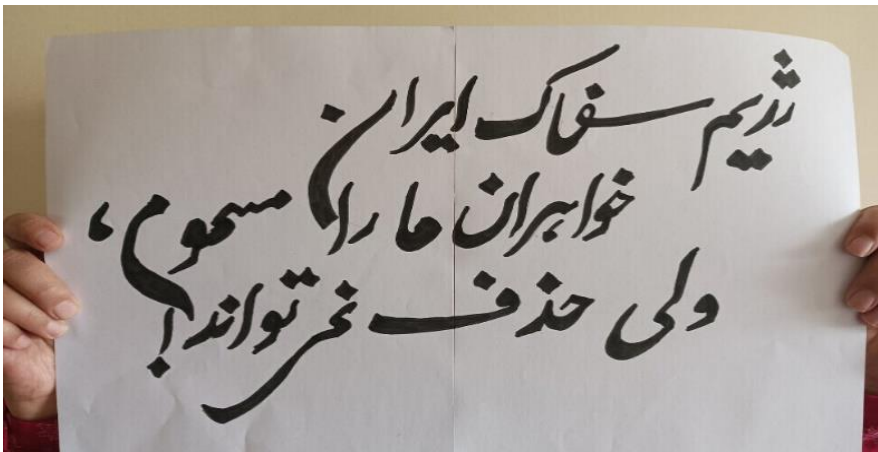 رژیم سفاک ایران
خواهران ما را مسموم،
ولی حذف نمی تواند!